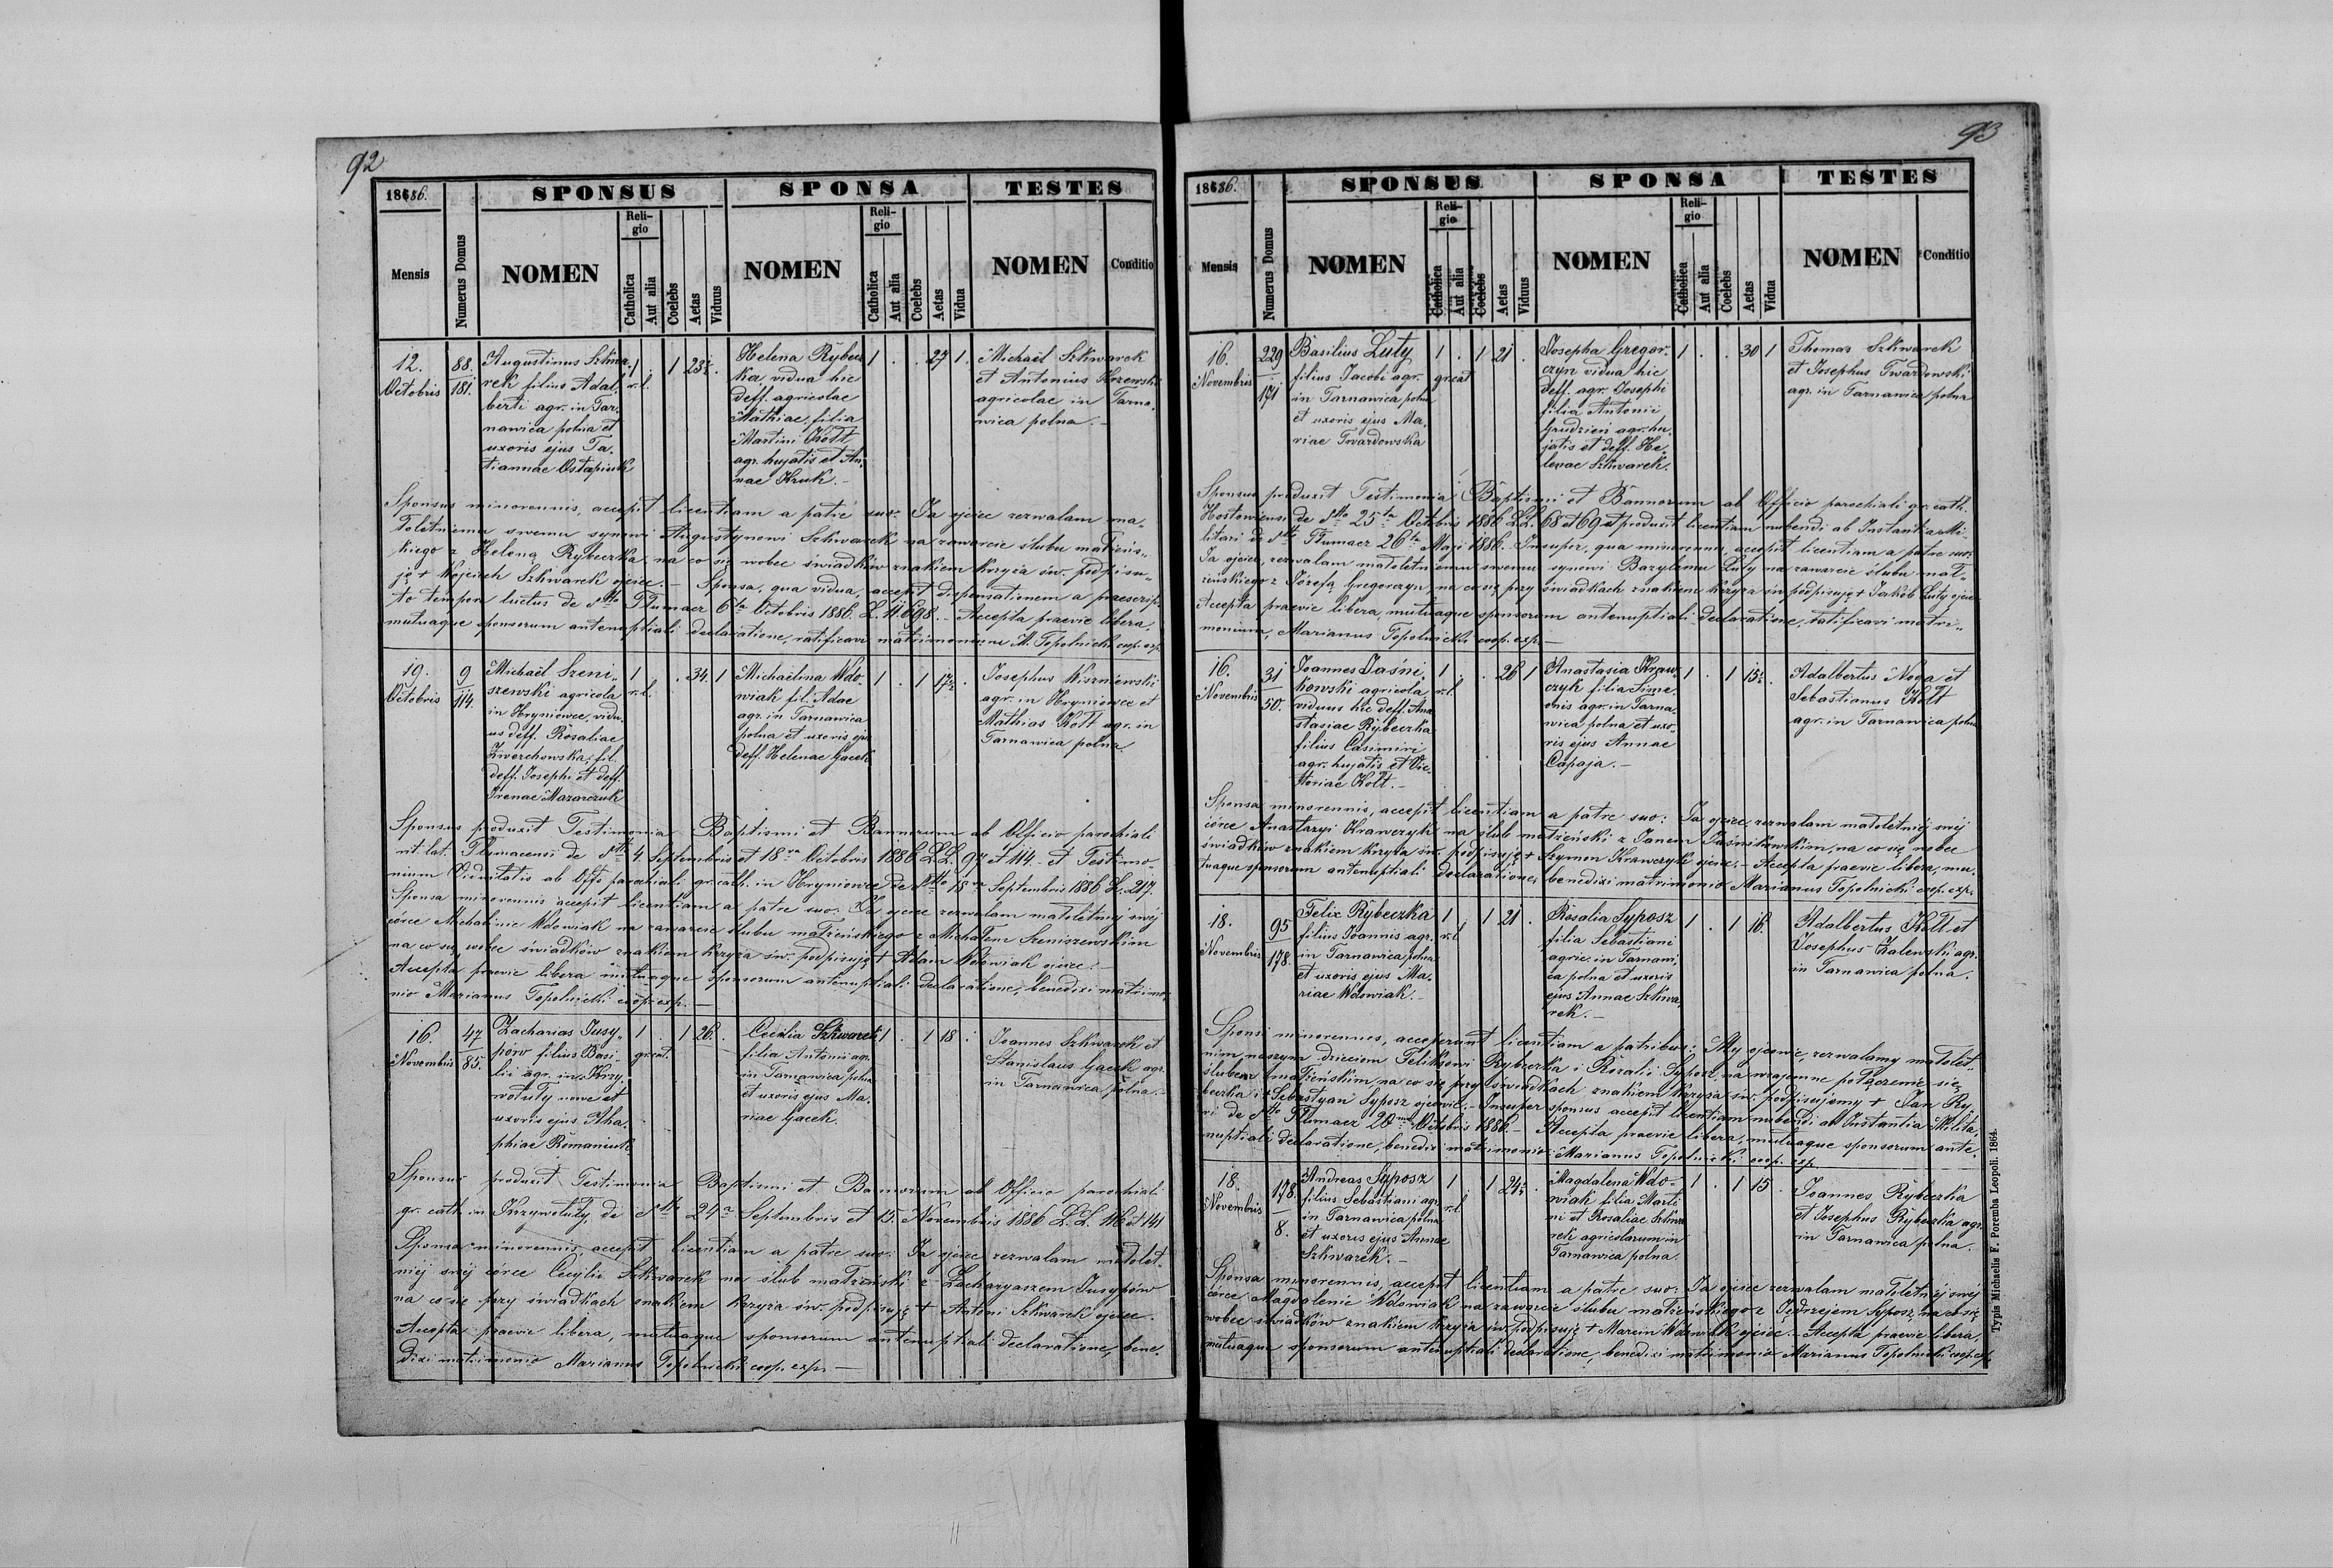 92
1886.
SPONSUS
SPONSA
TESTES
Mensis
Numerus Domus
NOMEN
Religio
Catholica
Aut alia
Coelebs
Aetas
Viduus
NOMEN
Religio
Catholica
Aut alia
Coelebs
Aetas
Vidua
NOMEN
Conditio
12.
Octobris
88.
181.
Augustinus Szkwa-
rek filius Adal-
berti agr. in Tar-
nawica polna et
uxoris ejus Ta-
tiannae Ostapiuk
1
r.l.
1
23½
Helena Rybecz
ka vidua hic
deff. agricolae
Mathiae, filia
Martini Kołt
agr. hujatis et An-
nae Kruk. –
1 . . 27 1.
Michaël Szkwarek
et Antonius
agricolae in Tarna-
wica polna. –
Sponsus minorennis, accepit licentiam a patre suo: Ja ojciec zezwalam ma-
łoletniemu swemu synowi Augustynowi Szkwarek na zawarcie ślubu małżeńs-
kiego z Heleną Rybeczka, na co się wobec świadków znakiem krzyża św. podpisu-
ję + Wojciech Szkwarek ojciec. – Sponsa, qua vidua, accepit dispensationem a praescrip-
to tempore luctus de dtto Tłumacz 6ta Octobris 1886. L. 11698. – Accepta praevie libera,
mutuaque sponsorum antenuptiali declaratione, ratificavi matrimonium M. Topolnicki coop. exp.
19.
Octobris
9
114.
Michaël Szeni-
szewski agricola
in Hryniowce, vidu-
us deff. Rosaliae
Zwerchowska, fil.
deff. Josephi et deff.
Irenae Mazarczuk
1
r.l.
. 34. 1
Michaëlina Wdo-
wiak fil. Adae
agr. in Tarnawica
polna et uxoris ejus
deff. Helenae Gacek
1 . 1 17½ .
Josephus Wiszniewski
agr. in Hryniowce et
Mathias Kołt agr. in
Tarnawica polna.
Sponsus produxit Testimonia Baptismi et Bannorum ab Officio parochiali
rit. lat. Tłumacensi de dtto 4 Septembris et 18va Octobris 1886 L.L. 97 et 114. et Testimo-
nium Viduitatis ab Offo parochiali gr. cath. in Hryniowce de dtto 18va Septembris 1886 L. 217.
Sponsa minorennis accepit licentiam a patre suo: Ja ojciec zezwalam małoletniej swej
córce Michalinie Wdowiak na zawarcie ślubu małżeńskiego z Michałem Szeniszewskim
na co się wobec świadków znakiem krzyża św. podpisuję + Adam Wdowiak ojciec. –
Accepta praevie libera mutuaque sponsorum antenuptiali declaratione, benedixi matrimo-
nio Marianus Topolnicki coop. exp. –
16.
Novembris
47
85.
Zacharias Jusy-
pów filius Basi-
lii agr. in Krzy-
wotuły nowe et
uxoris ejus Aha-
phiae Romaniuk
1
gr.cat.
1 26. .
Cecilia Szkwarek
filia Antonii agr.
in Tarnawica polna
et uxoris ejus Ma-
riae Gacek.
1 . 1 18 .
Joannes Szkwarek et
Stanislaus Gacek agr.
in Tarnawica polna. –
Sponsus produxit Testimonia Baptismi et Bannorum ab Officio parochiali
gr. cath. in Krzywotuły, de dtto 24a Septembris et 15. Novembris 1886 L.L. 116 et 141
Sponsa minorennis accepit licentiam a patre suo: Ja ojciec zezwalam małolet-
niej swej córce Cecylii Szkwarek na ślub małżeński z Zacharyaszem Jusypów
na co się przy świadkach znakiem krzyża św. podpisuję + Antoni Szkwarek ojciec.
Accepta praevie libera, mutuaque sponsorum antenuptiali declaratione, bene-
dixi matrimonio Marianus Topolnicki coop. exp. –
93
1886.
SPONSUS
SPONSA
TESTES
Mensis
Numerus Domus
NOMEN
Religio
Catholica
Aut alia
Coelebs
Aetas
Viduus
NOMEN
Religio
Catholica
Aut alia
Coelebs
Aetas
Vidua
NOMEN
Conditio
16.
Novembris
229
171
Basilius Luty
filius Jacobi agr.
in Tarnawica polna
et uxoris ejus Ma-
riae Twardowska
1 .
gr.cat
1 21 .
Josepha Gregor-
czyn vidua hic
deff. agr. Josephi
filia Antonii
Grudzien agr. hu-
jatis et deff. He-
lenae Szkwarek.
1 . . 30 1
Thomas Szkwarek
et Josephus Twardowski
agr. in Tarnawica polna
Sponsus produxit Testimonia Baptismi et Bannorum ab Officio parochiali gr. cath.
Hostowiensi de dtto 25ta Octobris 1886 L.L. 68 et 69 et produxit licentiam nubendi ab Instantia Mi-
litari de dtto Tłumacz 26ta Maji 1886. Insuper, qua minorennis, accepit licentiam a patre suo:
Ja ojciec, zezwalam małoletniemu swemu synowi Bazylemu Luty na zawarcie ślubu mał-
żeńskiego z Józefą Gregorczyn na co się przy świadkach znakiem krzyża św. podpisuję + Jakób Luty ojciec
Accepta praevie libera, mutuaque sponsorum antenuptiali declaratione, ratificavi matri-
monium, Marianus Topolnicki coop. exp. –
16.
Novembris
31
50.
Joannes Jaśni-
kowski agricola
viduus hic deff. Ana-
stasiae Rybeczka
filius Casimiri
agr. hujatis et Vic-
toriae Kołt. –
1 .
r.l
. 26 1
Anastasia Kraw-
czyk filia Sime-
onis agr. in Tarna-
wica polna et uxo-
ris ejus Annae
Capaja. –
1 . 1 15½ .
Adalbertus Noga et
Sebastianus Kołt
agr. in Tarnawica polna
Sponsa minorennis, accepit licentiam a patre suo: Ja ojciec zezwalam małoletniej swej
córce Anastazyi Krawczyk na ślub małżeński z Janem Jaśnikowskim, na co się wobec
świadków znakiem krzyża św. podpisuję + Szymon Krawczyk ojciec. – Accepta praevie libera, mu-
tuaque sponsorum antenuptiali declaratione, benedixi matrimonio Marianus Topolnicki coop. exp.
18.
Novembris
95
178.
Felix Rybeczka
filius Joannis agr.
in Tarnawica polna
et uxoris ejus Ma-
riae Wdowiak. –
1 .
r.l
1 21 .
Rosalia Syposz
filia Sebastiani
agric. in Tarnawi-
ca polna et uxoris
ejus Annae Szkwa-
rek. –
1 . 1 16.
Adalbertus Kołt et
Josephus Zalewski agr.
in Tarnawica polna.
Sponsi minorennes, acceperunt licentiam a patribus: My ojcowie, zezwalamy małolet-
nim naszym dzieciom Feliksowi Rybeczka i Rozalii Syposz, na wzajemne połączenie się
ślubem małżeńskim, na co się przy świadkach znakiem krzyża św. podpisujemy + Jan Ry-
beczka i + Sebastyan Syposz ojcowie. – Insuper sponsus accepit licentiam nubendi ab Instantia Milita-
ri de dtto Tłumacz 20ma Octobris 1886. – Accepta praevie libera, mutuaque sponsorum ante-
nuptiali declaratione, benedixi matrimonio: Marianus Topolnicki coop. exp.
18.
Novembris
178.
8.
Andreas Syposz
filius Sebastiani agr.
in Tarnawica polna
et uxoris ejus Annae
Szkwarek. –
1 .
r.l
1 24½ .
Magdalena Wdo-
wiak filia Marti-
ni et Rosaliae Szkwa-
rek agricolarum in
Tarnawica polna.
1 . 1 15 .
Joannes Rybeczka
et Josephus Rybeczka agr.
in Tarnawica polna.
Sponsa minorennis, accepit licentiam a patre suo: Ja ojciec zezwalam małoletniej swej
córce Magdalenie Wdowiak na zawarcie ślubu małżeńskiego z Jędrzejem Syposz, na co się
wobec świadków znakiem krzyża św. podpisuję + Marcin Wdowiak ojciec. – Accepta praevie libera,
mutuaque sponsorum antenuptiali declaratione, benedixi matrimonio Marianus Topolnicki coop. exp.
Typis Michaelis F. Poremba Leopoli. 1864.